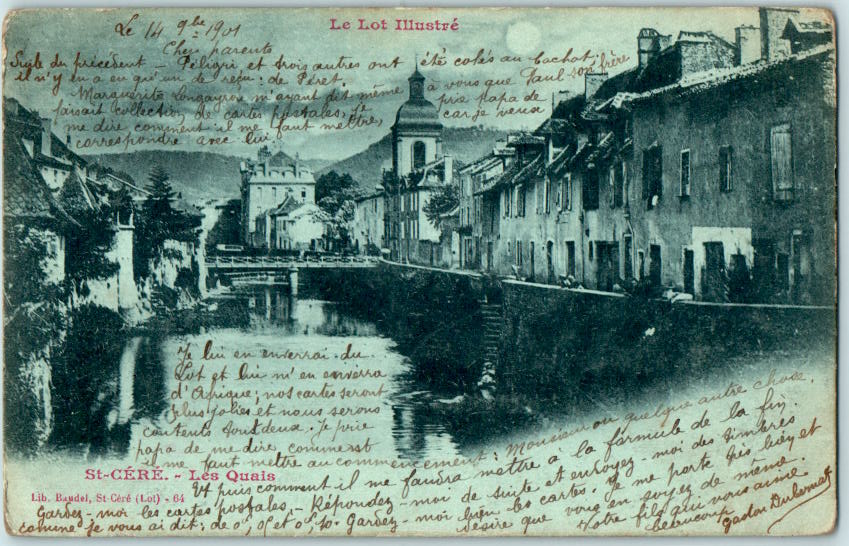 Le Lot Illustré
Le 14 9bre 1901
Chers parents
Suite du précédent – Péligri et trois autres ont été colés au cachot.
il n'y en a eu qu'un de reçu: de Péret.
Marguerite Longayrou m'ayant dit même à vous que Paul son frère
faisait collection de cartes postales, je prie papa de
me dire comment il me faut mettre, car je veux
correspondre avec lui
Je lui en enverrai du
Lot et lui m'en enverra
d'Afrique; nos cartes seront
plus jolies et nous serons
contents tout deux. Je prie
papa de me dire comment
il me faut mettre au commencement: Monsieur ou quelque autre chose.
Et puis comment il me faudra mettre à la formule de la fin.
St-CÉRÉ. - Les Quais
Lib. Baudel, St-Céré (Lot) - 64
Gardez-moi les cartes postales. – Répondez-moi de suite et envoyez-moi des timbres
comme je vous ai dit: de 0f, 05 et 0f, 10. Gardez-moi bien les cartes. Je me porte très bien et
désire que vous en soyez de même.
Votre fils qui vous aime
beaucoup
Gaston